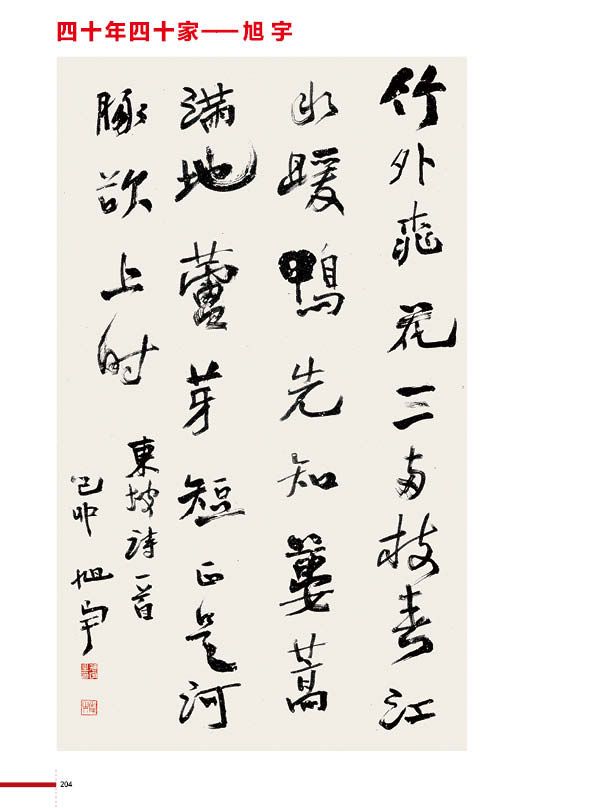 四十年四十家——旭宇
竹外桃花三两枝春江
水暖鴨先知蔞蒿
滿地蘆芽短正是河
豚欲上时
東坡詩一首
己卯旭宇
204